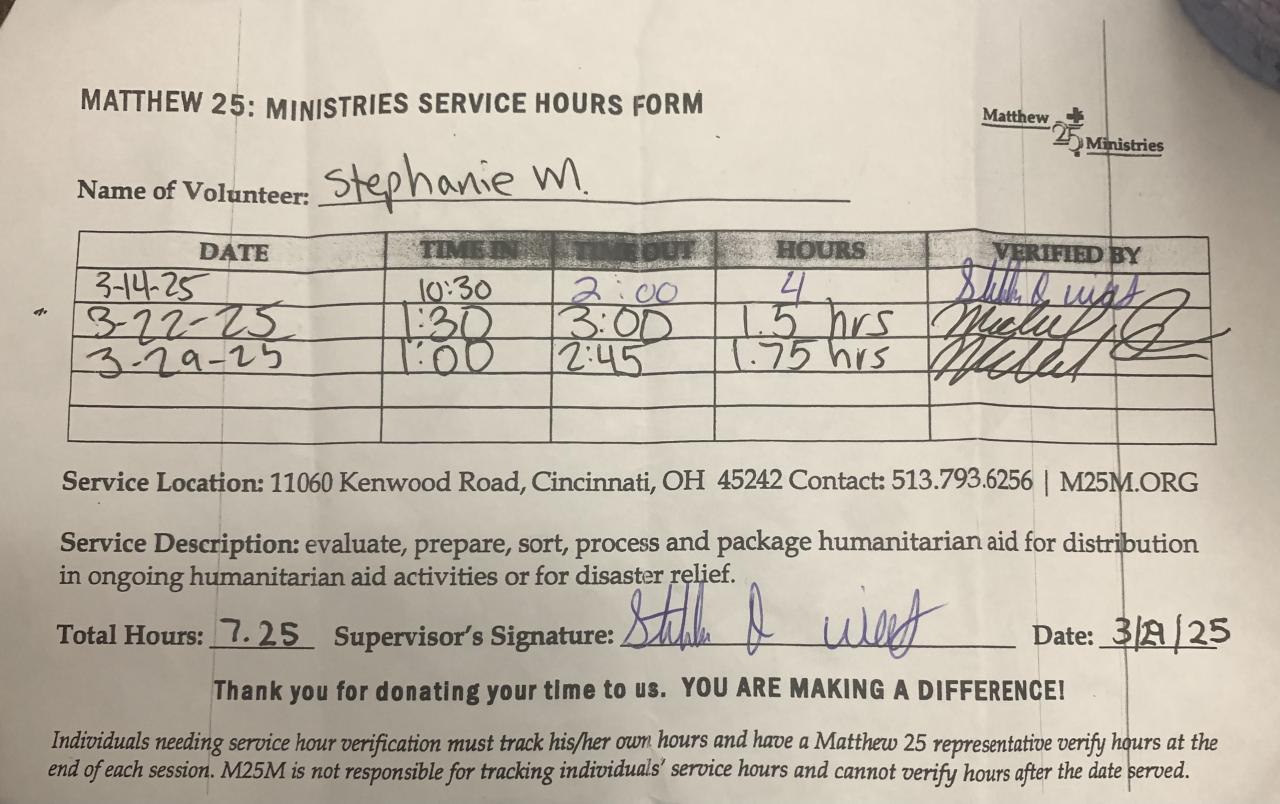 MATTHEW 25: MINISTRIES SERVICE HOURS FORM
Matthew 25 Ministries
Name of Volunteer: Stephanie M.
DATE TIME IN TIME OUT HOURS VERIFIED BY
3-14-25 10:30 2:00 4
3-22-25 1:30 3:00 1.5 hrs
3-29-25 1:00 2:45 1.75 hrs
Service Location: 11060 Kenwood Road, Cincinnati, OH 45242 Contact: 513.793.6256 | M25M.ORG
Service Description: evaluate, prepare, sort, process and package humanitarian aid for distribution
in ongoing humanitarian aid activities or for disaster relief.
Total Hours: 7.25 Supervisor's Signature: Date: 3/29/25
Thank you for donating your time to us. YOU ARE MAKING A DIFFERENCE!
Individuals needing service hour verification must track his/her own hours and have a Matthew 25 representative verify hours at the
end of each session. M25M is not responsible for tracking individuals' service hours and cannot verify hours after the date served.